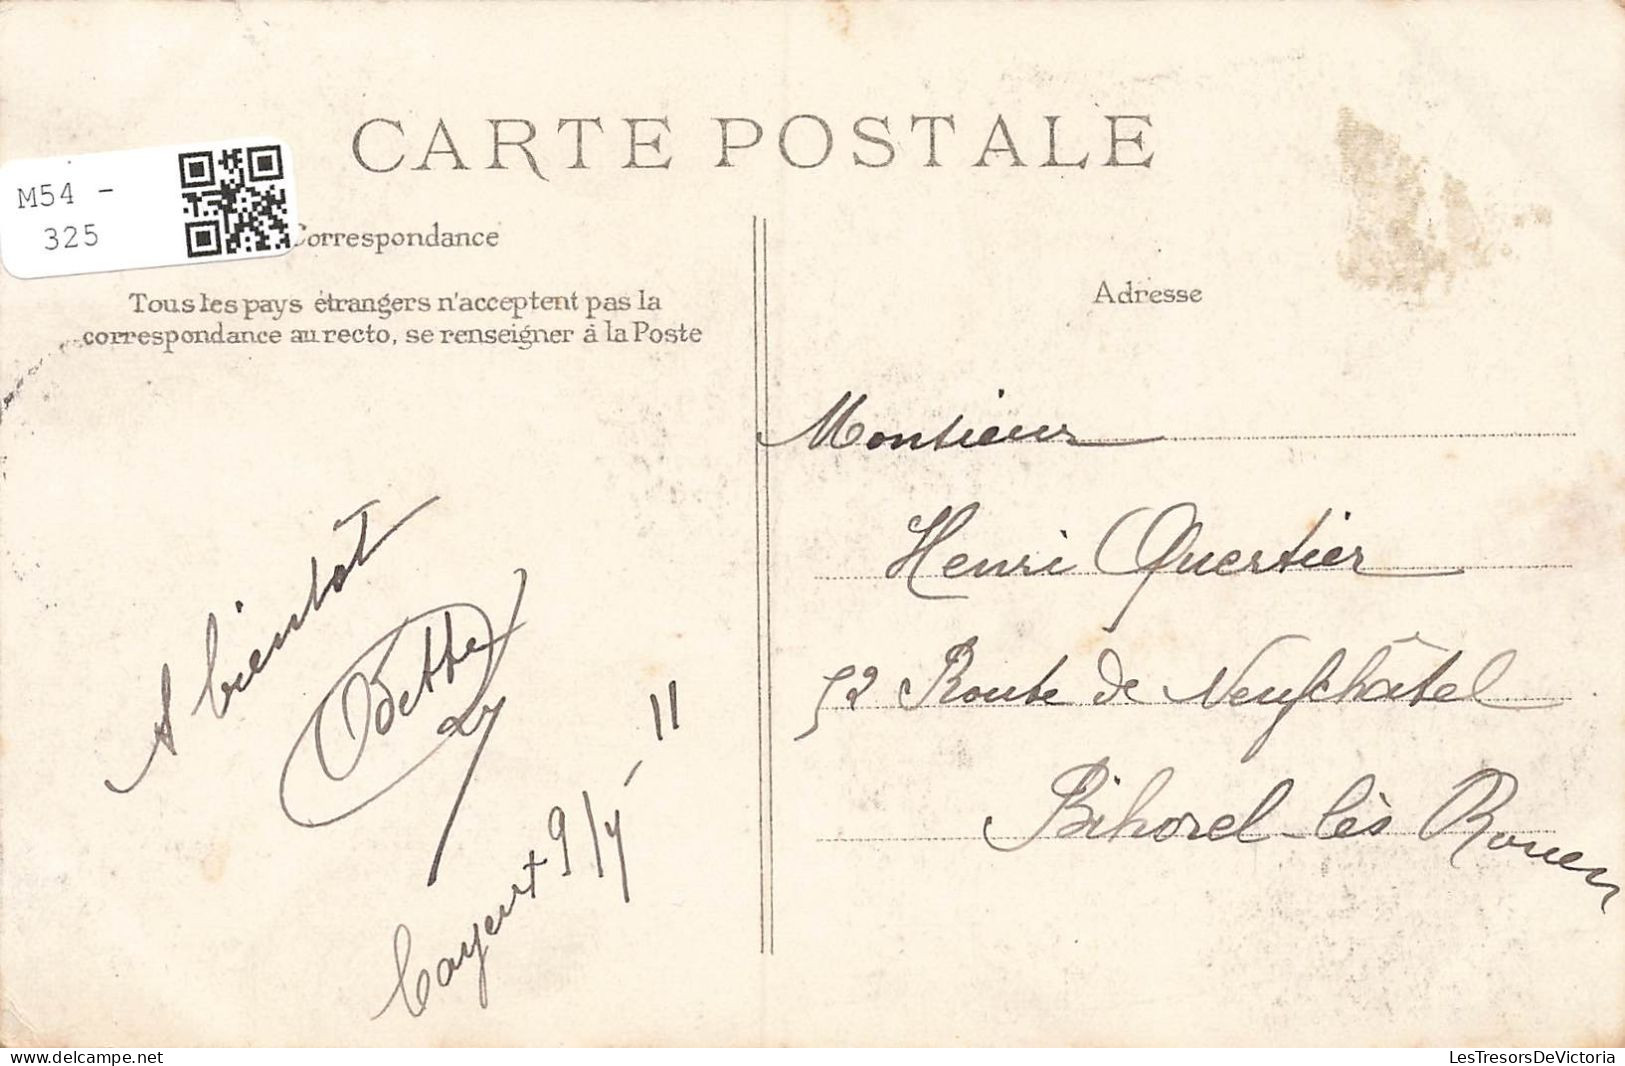 CARTE POSTALE
M54 -
325
Correspondance
Tous les pays étrangers n'acceptent pas la
correspondance au recto, se renseigner à la Poste
Adresse
A bientôt
Odette
Cayeux 9/7-11
Monsieur
Henri Quertier
52 Route de Neufchâtel
Bihorel-lès Rouen
delcampe.net
LesTresorsDeVictoria